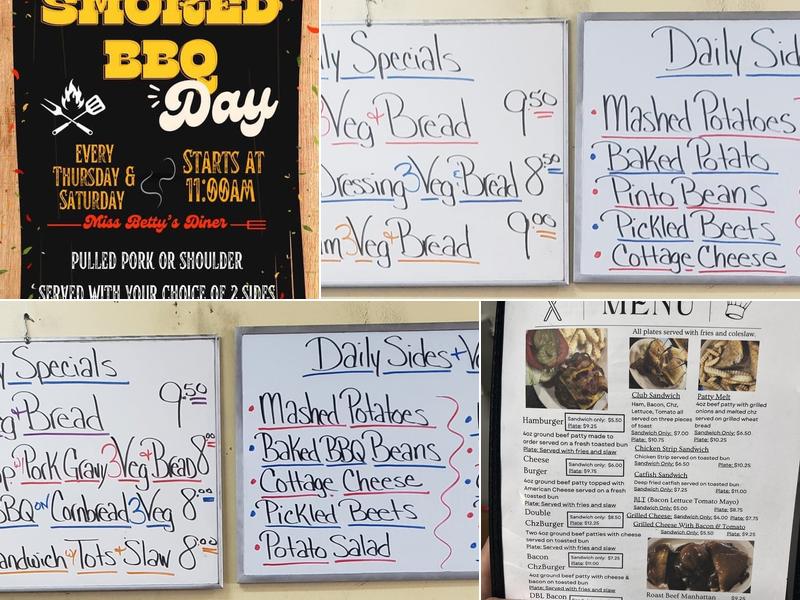 SMOKED
BBQ
Day
EVERY
THURSDAY &
SATURDAY
STARTS AT
11:00AM
Miss Betty's Diner
PULLED PORK OR SHOULDER
SERVED WITH YOUR CHOICE OF 2 SIDES
Specials
3 Veg & Bread 9.50
Dressing 3 Veg & Bread 8.50
3 Veg & Bread 9.00
Daily
• Mashed Potatoes
• Baked Potato
• Pinto Beans
• Pickled Beets
• Cottage Cheese
Specials
& Bread 9.50
w/ Pork Gravy 3 Veg & Bread 8.00
BBQ on Cornbread 3 Veg 8.00
w/ Tots & Slaw 8.00
Daily Sides +
• Mashed Potatoes
• Baked BBQ Beans
• Cottage Cheese
• Pickled Beets
• Potato Salad
MENU
All plates served with fries and coleslaw.
Hamburger
Sandwich only: $5.50
Plate: $9.25
4oz ground beef patty made to
order served on a fresh toasted bun
Plate: Served with fries and slaw
Cheese
Burger
Sandwich only: $6.00
Plate: $9.75
4oz ground beef patty topped with
American Cheese served on a fresh
toasted bun
Plate: Served with fries and slaw
Double
ChzBurger
Sandwich only: $8.50
Plate: $12.25
Two 4oz ground beef patties with cheese
served on toasted bun
Plate: Served with fries and slaw
Bacon
ChzBurger
Sandwich only: $7.25
Plate: $11.00
4oz ground beef patty with cheese &
bacon on toasted bun
Plate: Served with fries and slaw
DBL Bacon
Club Sandwich
Ham, Bacon, Chz,
Lettuce, Tomato all
served on three pieces
of toast
Sandwich Only: $7.00
Plate: $10.75
Patty Melt
4oz beef patty with grilled
onions and melted chz
served on grilled wheat
bread
Sandwich Only: $6.50
Plate: $10.25
Chicken Strip Sandwich
Chicken Strip served on toasted bun
Sandwich Only: $6.50 Plate: $10.25
Catfish Sandwich
Deep fried catfish served on toasted bun
Sandwich Only: $7.25 Plate: $11.00
BLT (Bacon Lettuce Tomato Mayo)
Sandwich Only: $5.00 Plate: $8.75
Grilled Cheese: Sandwich Only: $4.00 Plate: $7.75
Grilled Cheese With Bacon & Tomato
Sandwich Only: $5.50 Plate: $9.25
Roast Beef Manhattan $9.25